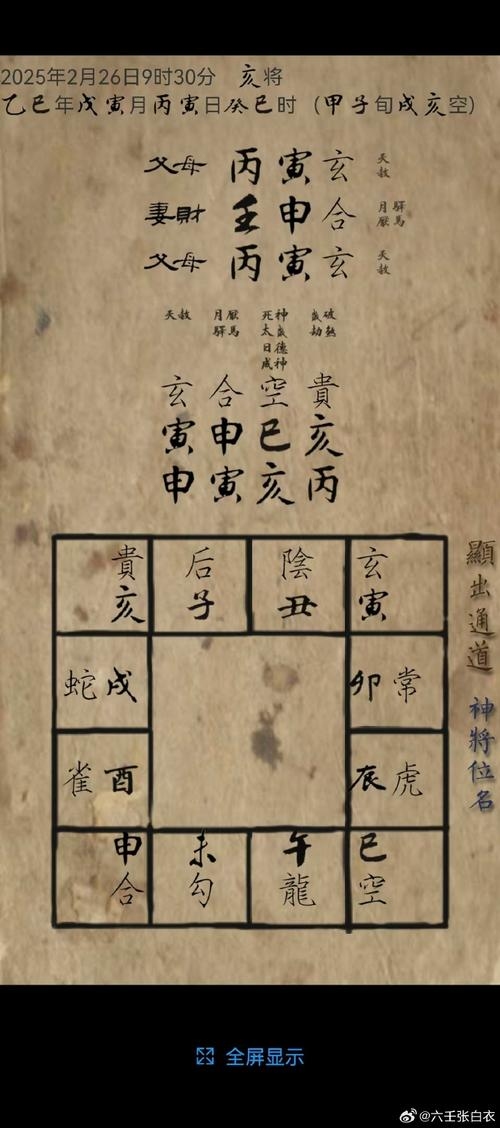 2025年2月26日9时30分 亥将
乙巳年戊寅月丙寅日癸巳时（甲子旬戌亥空）
父母 丙寅玄 天赦
妻財 壬申合 月厭 驛馬
父母 丙寅玄 天赦
天赦 月厭驛馬 死神太歲日德成神 歲破劫煞
玄 合 空 貴
寅 申 巳 亥
申 寅 亥 丙
貴 后 陰 玄
亥 子 丑 寅
蛇戌 卯常
雀酉 辰虎
申 未 午 巳
合 勾 龍 空
顯出通道
神將位名
全屏显示
@六壬张白衣